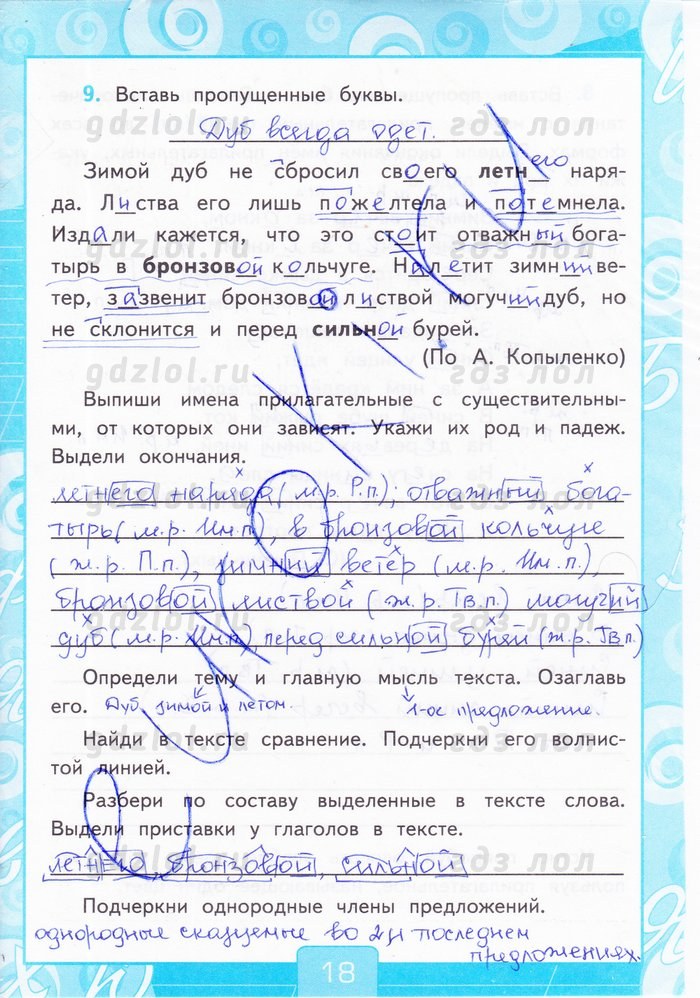 9. Вставь пропущенные буквы.
gdzlol.ru гдз лол
Дуб всегда одет.
Зимой дуб не сбросил своего летнего наря-
да. Листва его лишь пожелтела и потемнела.
Издали кажется, что это стоит отважный бога-
gdzlol.ru гдз лол
тырь в бронзовой кольчуге. Налетит зимний ве-
тер, зазвенит бронзовой листвой могучий дуб, но
не склонится и перед сильной бурей.
(По А. Копыленко)
gdzlol.ru гдз лол
Выпиши имена прилагательные с существительны-
ми, от которых они зависят. Укажи их род и падеж.
Выдели окончания.
летнего наряда (м.р. Р.п.); отважный бога-
gdzlol.ru гдз лол
тырь (м.р. Им.п), в бронзовой кольчуге
(ж.р. П.п.), зимний ветер (м.р. Им.п.),
бронзовой листвой (ж.р. Тв.п.) могучий
gdzlol.ru гдз лол
дуб (м.р. Им.п) перед сильной бурей (ж.р. Тв.п.)
Определи тему и главную мысль текста. Озаглавь
его. Дуб зимой и летом. 1-ое предложение.
Найди в тексте сравнение. Подчеркни его волнис-
gdzlol.ru гдз лол
той линией.
Разбери по составу выделенные в тексте слова.
Выдели приставки у глаголов в тексте.
летнего, бронзовой, сильной
gdzlol.ru гдз лол
Подчеркни однородные члены предложений.
однородные сказуемые во 2 и последнем
предложениях.
18